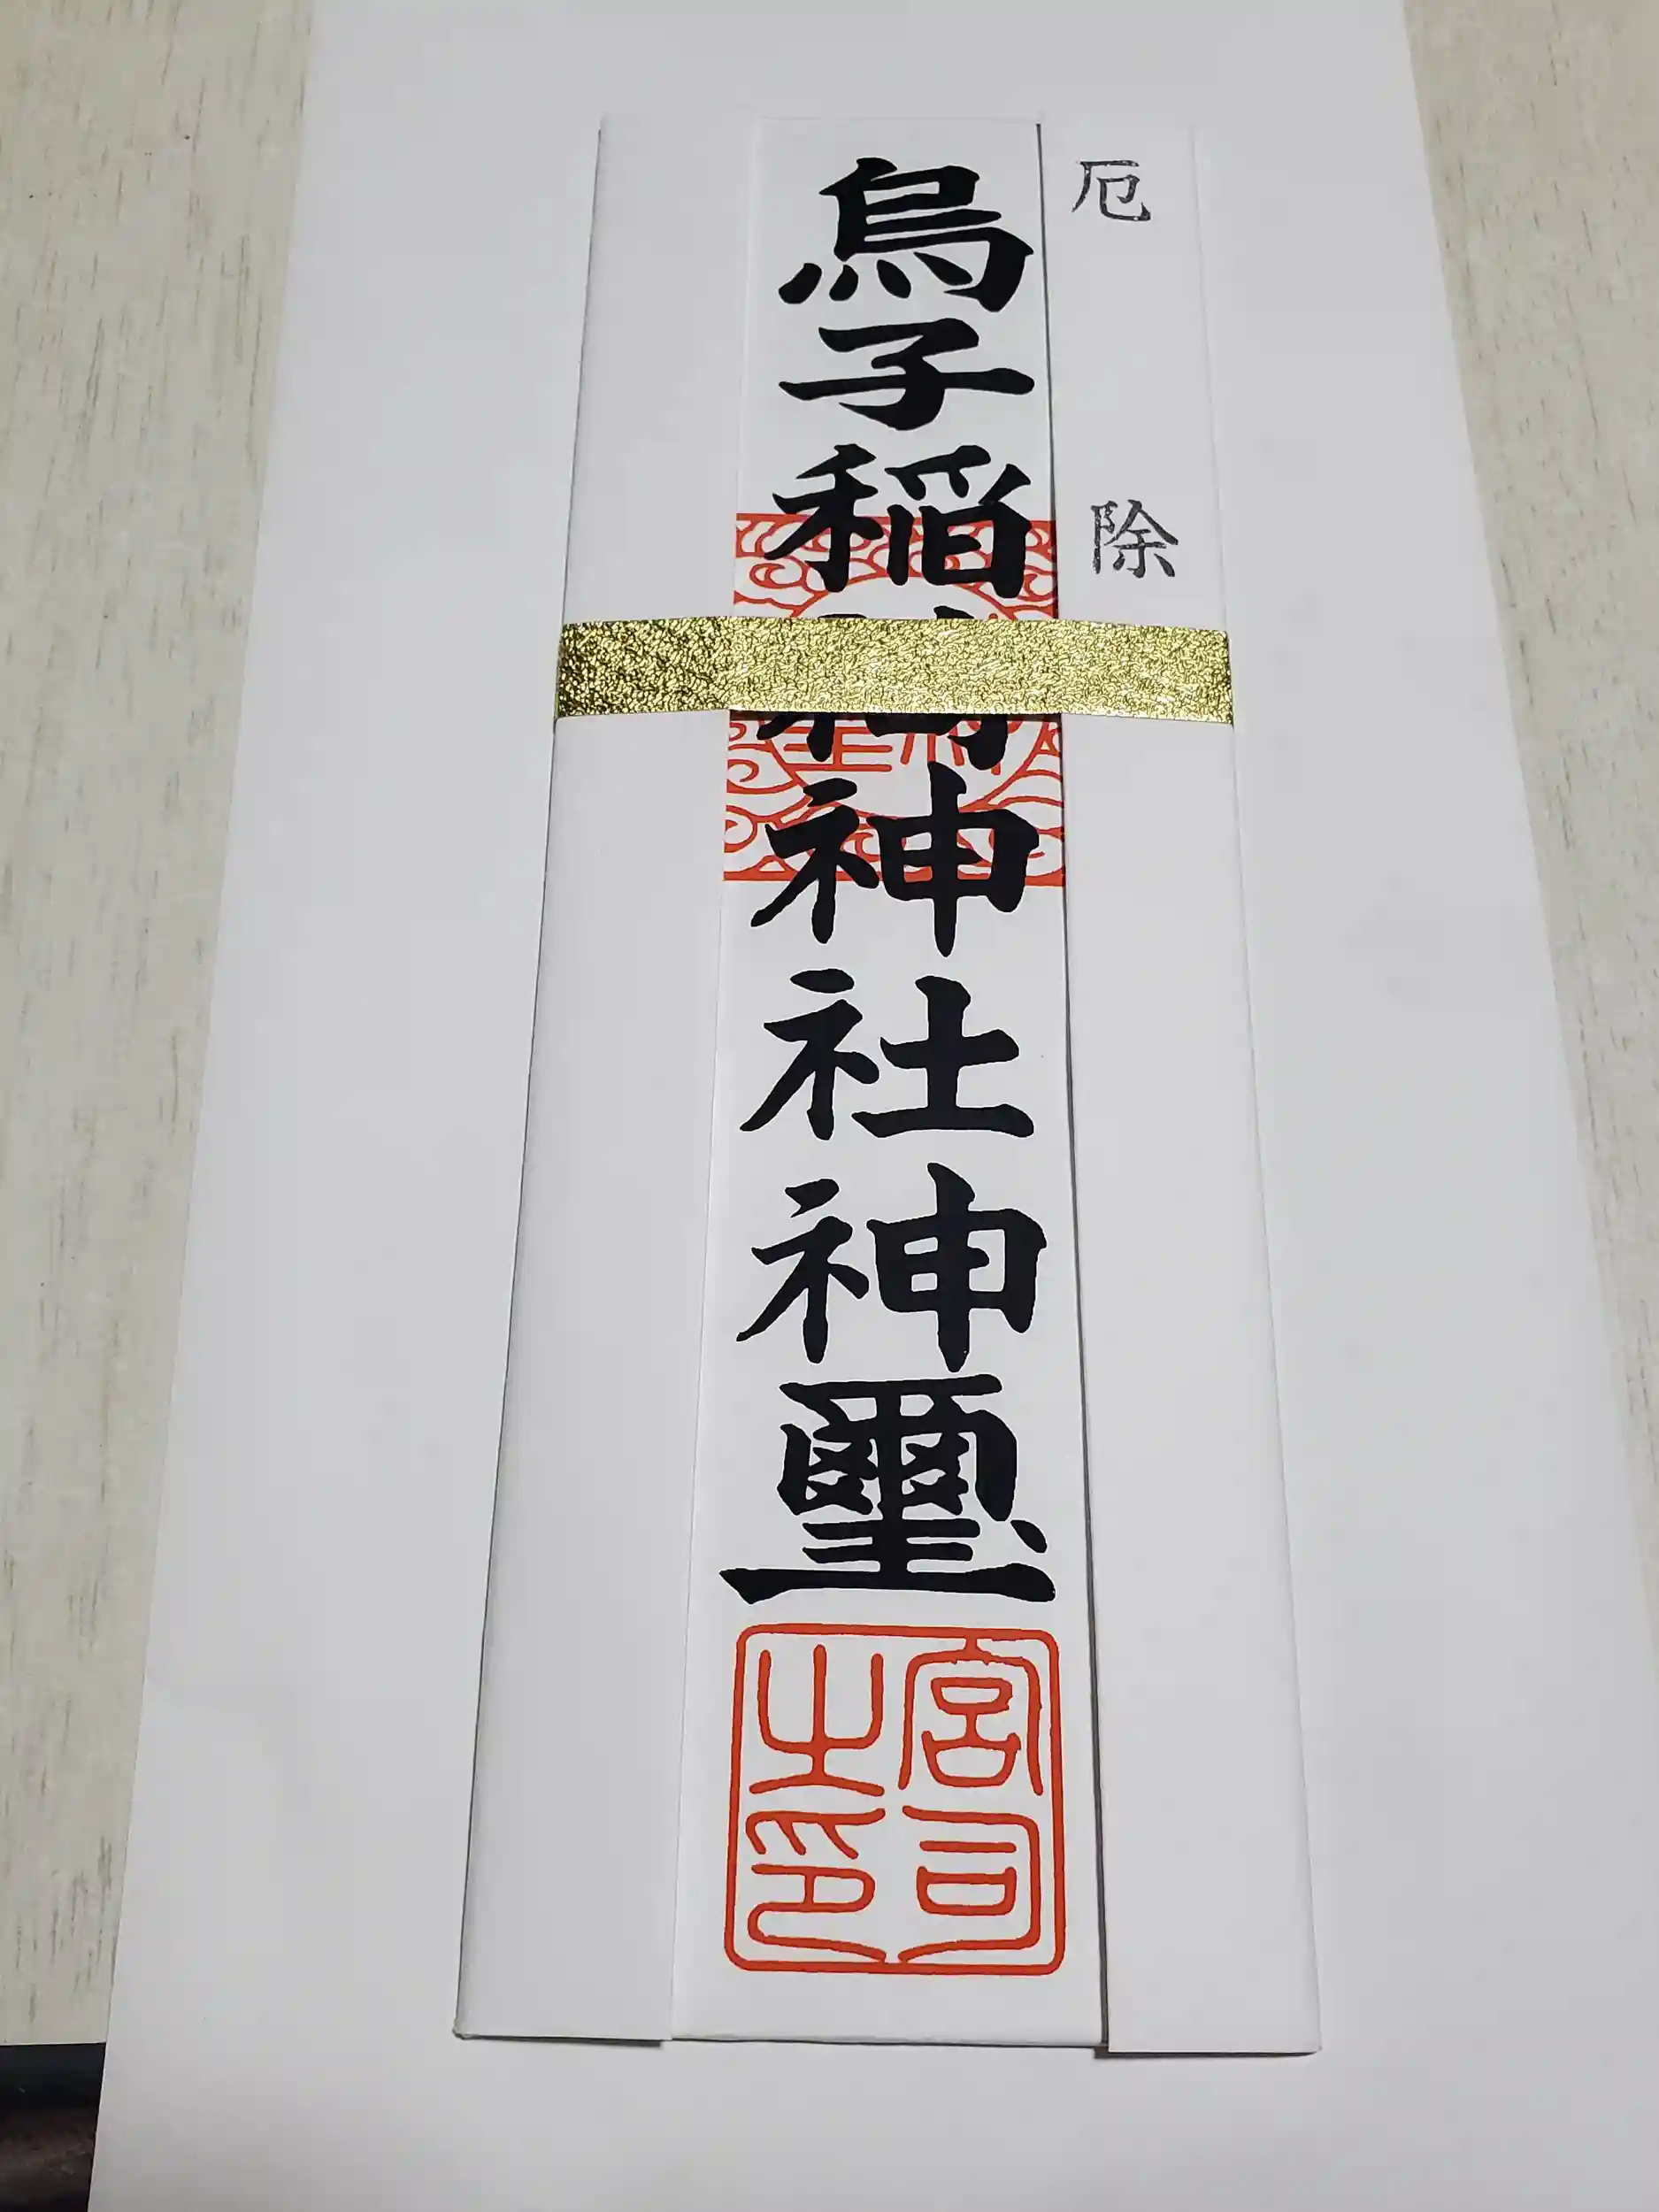 厄除
烏子稲荷神社神璽
宮司之印